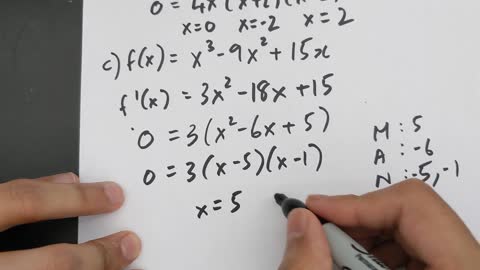 0 = 4x(x+2)(x-2)
x=0 x=-2 x=2
c) f(x) = x³-9x²+15x
f'(x) = 3x²-18x+15
0 = 3(x²-6x+5)
0 = 3(x-5)(x-1)
x=5
M : 5
A : -6
N : -5, -1